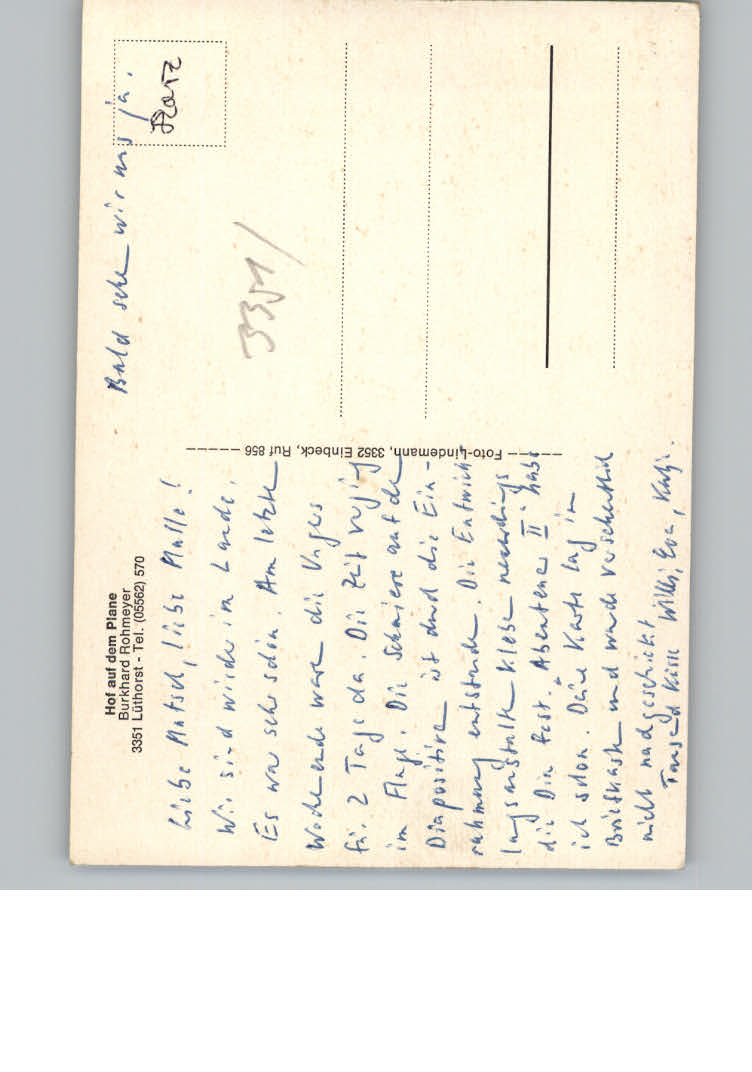 Hof auf dem Plane
Burkhard Rohmeyer
3351 Lüthorst - Tel. (05562) 570
Liebe Matsch, liebe Malle!
Wir sind wieder im Lande.
Es war sehr schön. Am letzten
Wochenende waren die
für 2 Tage da. Die Zeit verging
im Fluge. Die Schmiere auf den
Diapositiven ist durch die Ein-
rahmung entstanden. Die Entwick-
lungsanstalten kleben neuerdings
die Dia fest. "Abenteuer II" habe
ich schon. Deine Karte lag im
Briefkasten und wurde versehentlich
nicht nachgeschickt
Tausend Küsse Willi, Eva, Katja.
Bald sehen wir uns ja.
Foto-Lindemann, 3352 Einbeck, Ruf 856
3351
Harz